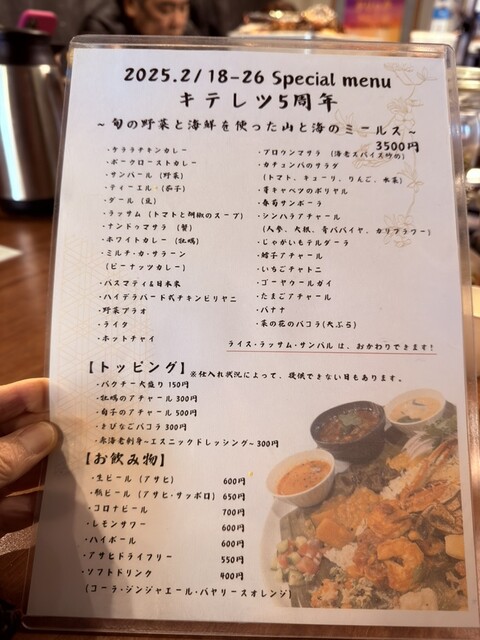 2025.2/18-26 Special menu
キテレツ5周年
~ 旬の野菜と海鮮を使った山と海のミールス ~
3500円
・ケララチキンカレー
・ポークローストカレー
・サンバール (野菜)
・ティーエル (茄子)
・ダール (豆)
・ラッサム (トマトと胡椒のスープ)
・ナンドゥマサラ (蟹)
・ホワイトカレー (牡蠣)
・ミルチ・カ・サラーン
(ピーナッツカレー)
・バスマティ&日本米
・ハイデラバード式チキンビリヤニ
・野菜プラオ
・ライタ
・ホットチャイ
・プロウンマサラ (海老スパイス炒め)
・カチュンバのサラダ
(トマト、キューリ、りんご、水菜)
・芽キャベツのポリヤル
・春菊サンボーラ
・シンハラアチャール
(人参、大根、青パパイヤ、カリフラワー)
・じゃがいもテルダーラ
・鯖子アチャール
・いちごチャトニ
・ゴーヤウールガイ
・たまごアチャール
・バナナ
・菜の花のパコラ(天ぷら)
ライス・ラッサム・サンバル は、おかわりできます!
【トッピング】※仕入れ状況によって、提供できない日もあります。
・パクチー大盛り 150円
・牡蠣のアチャール 300円
・白子のアチャール 500円
・きびなごパコラ 300円
・赤海老刺身~エスニックドレッシング~ 300円
【お飲み物】
・生ビール (アサヒ) 600円
・瓶ビール (アサヒ・サッポロ) 650円
・コロナビール 700円
・レモンサワー 600円
・ハイボール 600円
・アサヒドライフリー 550円
・ソフトドリンク 400円
(コーラ・ジンジャエール・バヤリースオレンジ)